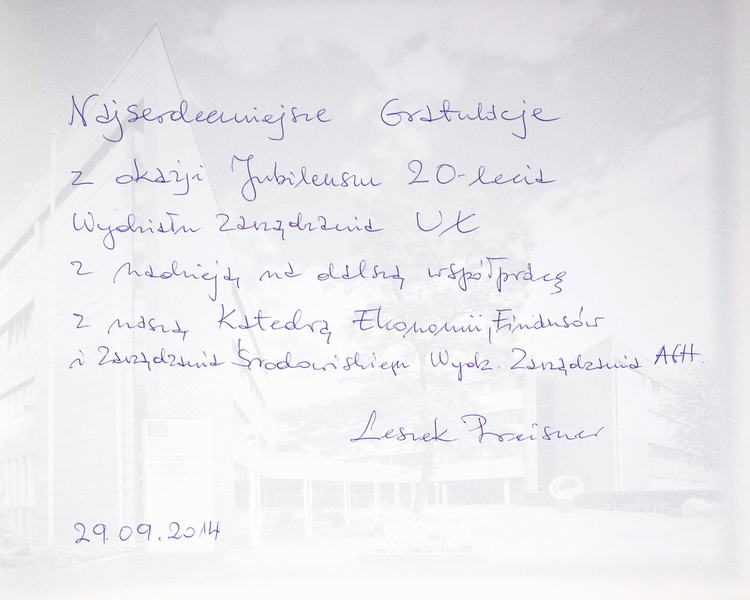 Najserdeczniejsze Gratulacje
z okazji Jubileuszu 20-lecia
Wydziału Zarządzania UŁ
z nadzieją na dalszą współpracę
z naszą Katedrą Ekonomii, Finansów
i Zarządzania Środowiskiem Wydz. Zarządzania AGH.
Leszek Preisner
29.09.2014